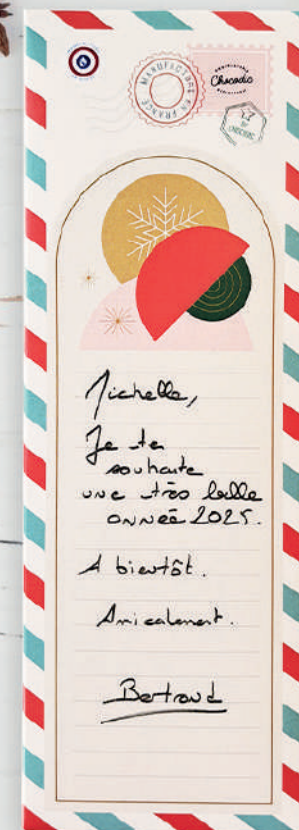 MANUFACTURÉ
EN FRANCE
Chocodic
17
Michelle,
Je te
souhaite
une très belle
année 2025.
A bientôt.
Amicalement.
Bertrand